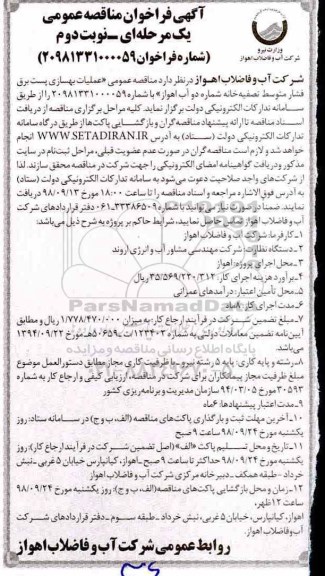 وزارت نیرو
شرکت آب و فاضلاب اهواز
آگهی فراخوان مناقصه عمومی
یک مرحله‌ای ـ نوبت دوم
(شماره فراخوان ۲۰۹۸۱۳۳۱۰۰۰۰۵۹)
شرکت آب و فاضلاب اهواز در نظر دارد مناقصه عمومی «عملیات بهسازی پست برق
فشار متوسط تصفیه خانه شماره دو آب اهواز» با شماره ۲۰۹۸۱۳۳۱۰۰۰۰۵۹ را از طریق
سامانه تدارکات الکترونیکی دولت برگزار نماید. کلیه مراحل برگزاری مناقصه از دریافت
اسناد مناقصه تا ارائه پیشنهاد مناقصه گران و بازگشایی پاکت‌ها از طریق درگاه سامانه
تدارکات الکترونیکی دولت (ستاد) به آدرس WWW.SETADIRAN.IR انجام
خواهد شد و لازم است مناقصه گران در صورت عدم عضویت قبلی، مراحل ثبت نام در سایت
مذکور و دریافت گواهینامه امضای الکترونیکی را جهت شرکت در مناقصه محقق سازند. لذا
از شرکت‌های واجد صلاحیت دعوت می‌شود به سامانه تدارکات الکترونیکی دولت (ستاد)
به آدرس فوق الاشاره مراجعه و اسناد مناقصه را تا ساعت ۱۸:۰۰ مورخ ۹۸/۰۹/۱۳ دریافت
نمایند. ضمنا در صورت نیاز می‌توانید با شماره ۳۳۳۸۶۵۰۹-۰۶۱ دفتر قراردادهای شرکت
آب و فاضلاب اهواز تماس حاصل نمایید، شرایط حاکم بر پروژه به شرح ذیل می‌باشد:
۱- کارفرما: شرکت آب و فاضلاب اهواز
۲- دستگاه نظارت: شرکت مهندسی مشاور آب و انرژی اروند
۳- محل اجرای پروژه: اهواز
۴- برآورد هزینه اجرای کار: ۳۵/۵۶۹/۲۳۰/۳۱۲ ریال
۵- محل تأمین اعتبار: درآمدهای عمرانی
۶- مدت اجرای کار: ۸ ماه
۷- مبلغ تضمین شرکت در فرآیند ارجاع کار به میزان ۱/۷۷۸/۴۷۰/۰۰۰ ریال و مطابق
آیین نامه تضمین معاملات دولتی به شماره ۱۲۳۴۰۲/ت۵۰۶۵۹هـ مورخ ۱۳۹۴/۰۹/۲۲
می‌باشد.
۸- رشته و پایه کاری: پایه ۵ رشته نیرو و با ظرفیت کاری مجاز مطابق دستورالعمل موضوع
مبلغ ظرفیت مجاز پیمانکاران برای شرکت در مناقصه، ارزیابی کیفی و ارجاع کار به شماره
۳۰۵۹۳ مورخ ۹۴/۰۳/۰۵ سازمان مدیریت و برنامه ریزی کشور
۹- مدت اعتبار پیشنهادها: ۶ ماه
۱۰- آخرین مهلت ثبت و بارگذاری پاکت‌های مناقصه (الف، ب و ج) در سامانه ستاد: روز
یکشنبه مورخ ۹۸/۰۹/۲۴ ساعت ۹ صبح
۱۱- تاریخ و محل تسلیم پاکت «الف» (اصل تضمین شرکت در فرآیند ارجاع کار): روز
یکشنبه مورخ ۹۸/۰۹/۲۴ حداکثر تا ساعت ۹ صبح ـ اهواز، کیانپارس خیابان ۵ غربی ـ نبش
خرداد ـ طبقه همکف ـ دبیرخانه مرکزی شرکت آب و فاضلاب اهواز
۱۲- زمان و محل بازگشایی پاکت‌های مناقصه (الف، ب و ج): روز یکشنبه مورخ ۹۸/۰۹/۲۴
ساعت ۱۲ ظهر،
اهواز، کیانپارس، خیابان ۵ غربی، نبش خرداد ـ طبقه سوم ـ دفتر قراردادهای شرکت
آب و فاضلاب اهواز.
روابط عمومی شرکت آب و فاضلاب اهواز